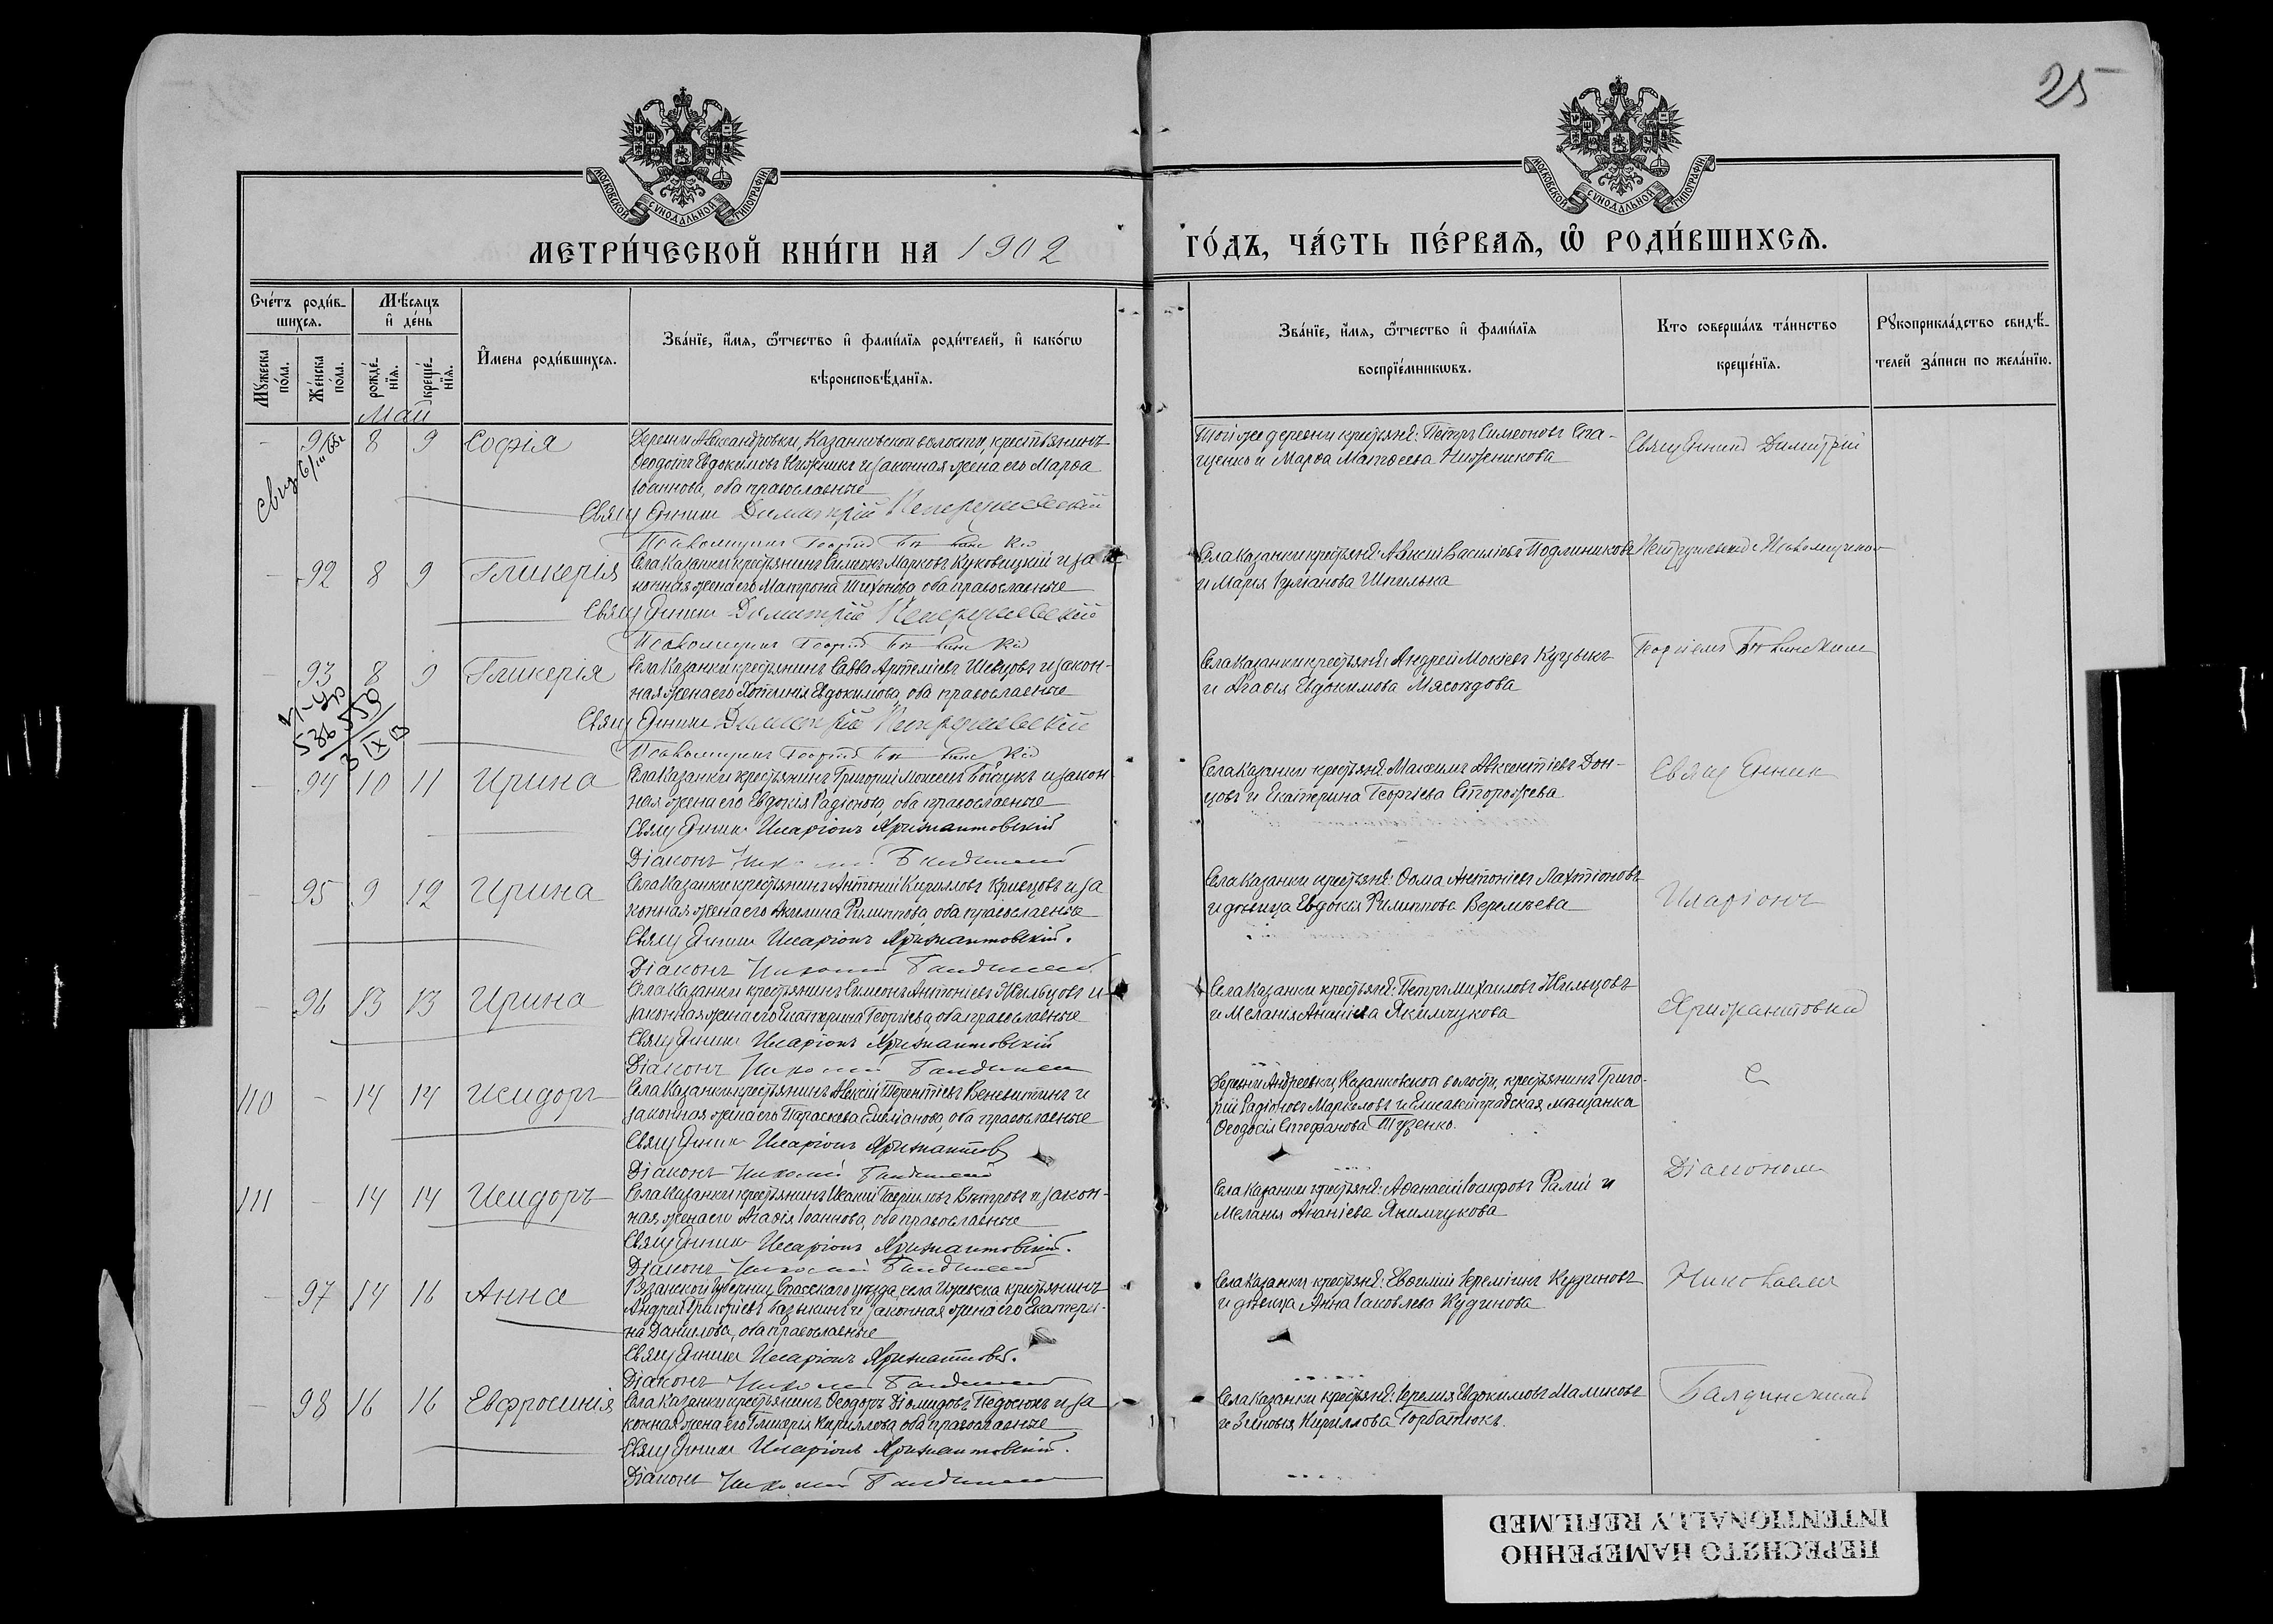 25
МОСКОВСКОЙ СѴНОДАЛЬНОЙ ТИПОГРАФІИ
МОСКОВСКОЙ СѴНОДАЛЬНОЙ ТИПОГРАФІИ
МЕТРИ́ЧЕСКОЙ КНИ́ГИ НА 1902
ГО́ДЪ, ЧА́СТЬ ПЕ́РВАѦ, Ѽ РОДИ́ВШИХСѦ.
Сче́тъ роди́в-
шихсѧ.
Мꙋ́жеска по́ла.
Же́нска по́ла.
Мѣ́сѧцъ
и҆ де́нь
рожде́-
нїѧ.
креще́-
нїѧ.
И҆мена роди́вшихсѧ.
Зва́нїе, и҆́мѧ, ѻ҆́тчество и҆ фами́лїѧ роди́телей, и҆ како́гѡ
вѣроисповѣ́данїѧ.
Зва́нїе, и҆́мѧ, ѻ҆́тчество и҆ фами́лїѧ
воспрїе́мникѡвъ.
Кто соверша́лъ та́инство
креще́нїѧ.
Рꙋкоприкла́дство свидѣ́-
телей за́писи по жела́нїю.
Май
- 91 8 9 Софія
Деревни Александровки, Казанковской волости, крестьянинъ
Ѳеодотъ Евдокимовъ Нижникъ и законная жена его Марѳа
Іоаннова, оба православные
Священникъ Димитрій Петрушевскій
Псаломщикъ Георгій
Той же деревни крестьяне: Петръ Симеоновъ Ста-
щенко и Марѳа Матѳеева Нижникова
Священникъ Димитрій
- 92 8 9 Гликерія
Села Казанки крестьянинъ Симеонъ Марковъ Куковицкій и за
конная жена его Матрона Тихонова, оба православные
Священникъ Димитрій Петрушевскій
Псаломщикъ Георгій
Села Казанки крестьяне: Алексій Василіевъ Подлиниковъ
и Марія Шпилька
Петрушевскій с Псаломщикомъ
- 93 8 9 Гликерія
Села Казанки крестьянинъ Савва Артеміевъ Шевцовъ и закон-
ная жена его Фотинія Евдокимова, оба православные
Священникъ Димитрій Петрушевскій
Псаломщикъ Георгій
Села Казанки крестьяне: Андрей Мокіевъ Куцыкъ
и Агаѳія Евдокимова Мясоѣдова
Георгіемъ
- 94 10 11 Ирина
Села Казанки крестьянинъ Григорій Моисеевъ Бойцукъ и закон
ная жена его Евдокія Радіонова, оба православные
Священникъ Иларіонъ Хрисантовскій
Діаконъ Николай
Села Казанки крестьяне: Максимъ Авксентіевъ Дон-
цовъ и Екатерина Георгіева Сторожева
Священник
- 95 9 12 Ирина
Села Казанки крестьянинъ Антоній Кирилловъ Кривцовъ и за
конная жена его Акилина Филиппова, оба православные
Священникъ Иларіонъ Хрисантовскій.
Діаконъ Николай
Села Казанки крестьяне: Ѳома Антоніевъ Лахтіоновъ
и дѣвица Евдокія Филиппова Веремѣева
Иларіонъ
- 96 13 13 Ирина
Села Казанки крестьянинъ Симеонъ Антоніевъ Жильцовъ и
законная жена его Екатерина Георгіева, оба православные
Священникъ Иларіонъ Хрисантовскій
Діаконъ Николай
Села Казанки крестьяне: Петръ Михаиловъ Жильцовъ
и Меланія Ананіева Якимчукова
Хрисантовскій
110 - 14 14 Исидоръ
Села Казанки крестьянинъ Алексій Терентіевъ Веневитинъ и
законная жена его Параскева Емиліанова, оба православные
Священникъ Иларіонъ Хрисантов
Діаконъ Николай
Деревни Андреевки Казанковской волости, крестьянинъ Григо-
рій Радіоновъ Маркеловъ и Елисаветградская мѣщанка
Ѳеодосія Стефанова Тузенко.
С
111 - 14 14 Исидоръ
Села Казанки крестьянинъ Исакій Гавріиловъ и закон-
ная жена его Агаѳія Іоаннова, оба православные
Священникъ Иларіонъ Хрисантовскій.
Діаконъ Николай
Села Казанки крестьяне: Аѳанасій Іосифовъ Ралій и
Меланія Ананіева Якимчукова
Діакономъ
- 97 14 16 Анна
Рязанской губерніи, Спасскаго уѣзда, села Ижевска крестьянинъ
Андрей Григоріевъ Базыкинъ и законная жена его Екатери-
на Данилова, оба православные
Священникъ Иларіонъ
Діаконъ Николай
Села Казанки крестьяне: Евѳимій Іереміинъ Кудиновъ
и дѣвица Анна Іаковлева Кудинова
Николаемъ
- 98 16 16 Евфросинія
Села Казанки крестьянинъ Ѳеодоръ Діомидовъ Недосюкъ и за
конная жена его Гликерія Кириллова, оба православные
Священникъ Иларіонъ Хрисантовскій.
Діаконъ Николай
Села Казанки крестьяне: Іеремія Евдокимовъ Маликовъ
и Зиновія Кириллова Горбатюкъ.
Балдинскимъ
ПЕРЕСНЯТО НАМЕРЕННО
INTENTIONALLY REFILMED